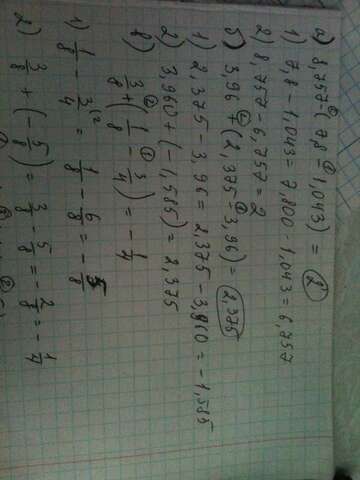 а) 8,757-(7,8-1,043) = 2
1) 7,8-1,043=7,800-1,043=6,757
2) 8,757-6,757=2
б) 3,96+(2,375-3,96)=2,375
1) 2,375-3,96=2,375-3,960=-1,585
2) 3,960+(-1,585)=2,375
в) 3/8+(1/8-3/4)=-1/4
1) 1/8-3/4^2=1/8-6/8=-5/8
2) 3/8+(-5/8)=3/8-5/8=-2/8=-1/4